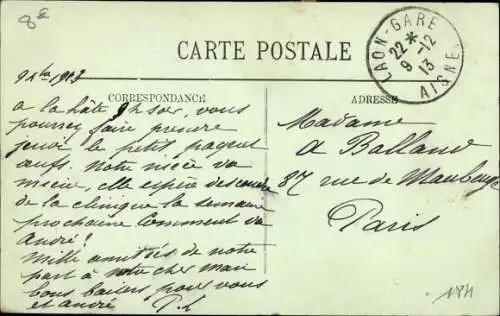 8E
LAON-GARE
22 *
9-12
13
AISNE
CARTE POSTALE
1913
CORRESPONDANCE
ADRESSE
a la hâte 9h soir, vous
pourrez faire prendre
jeudi le petit paquet
œufs. Notre nièce va
mieux, elle espère descendre
de la clinique la semaine
prochaine Comment va
André!
Mille amitiés de notre
part à votre cher mari
bons baisers pour vous
et andré P. L
Madame
A Balland
87 rue de Maubeuge
Paris